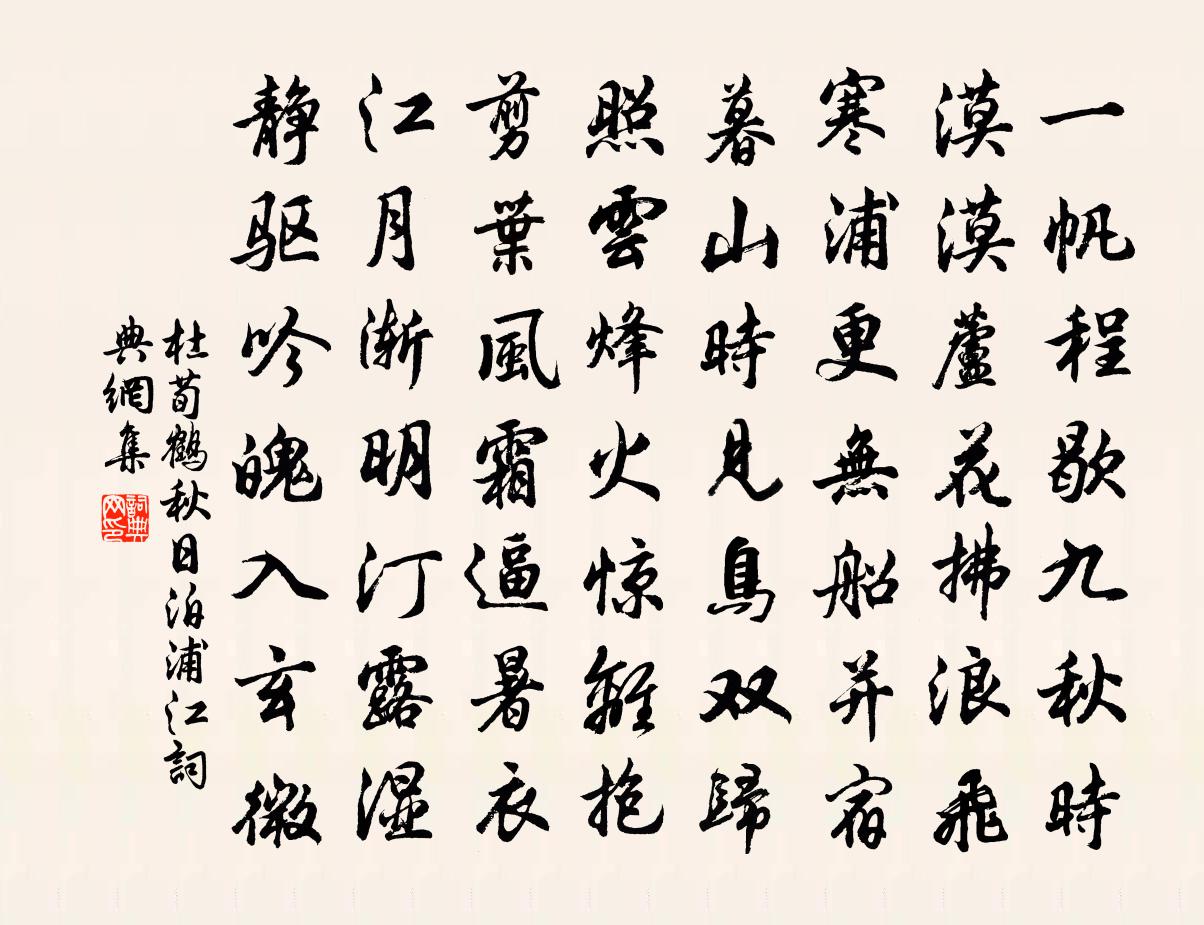 一帆程歇九秋時
漠漠蘆花拂浪飛
寒浦更無船并宿
暮山時見鳥双歸
照雲烽火惊離抱
剪葉風霜逼暑衣
江月渐明汀露湿
静驱吟魄入玄微
杜荀鶴秋日泊浦江詞
典網集
詞典
网印